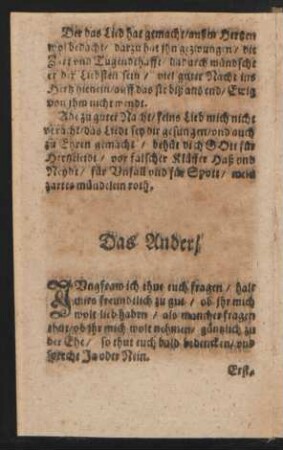 Der das Lied hat gemacht/ auß in Hertzen
wol bedacht/ darzu hat jhn gezwungen/ die
Zier vnd Tugendthafft/ dadurch wündscht
er der Liebsten sein/ viel guter Nacht ins
Hertz hienein/ auff das sie biß ans end/ Ewig
von jhm nicht wendt.
Ade zu guter Nacht/ feins Lieb mich nicht
veracht/ das Liedt sey dir gesungen/ vnd auch
zu Ehren gemacht/ behüt dich GOtt für
Hertzleidt/ vor falscher Kläffer Haß vnd
Neydt/ für Vnfall vnd für Spott/ mein
zartes mündelein roth.
Das Ander/
JVngfraw ich thue euch fragen/ halt
jhrs freundtlich zu gut/ ob jhr mich
wolt lieb haben/ als mancher fragen
thut/ ob jhr mich wolt nehmen/ gäntzlich zu
der Ehe/ so thut euch bald bedencken/ vnd
sprecht Ja oder Nein.
Erst-